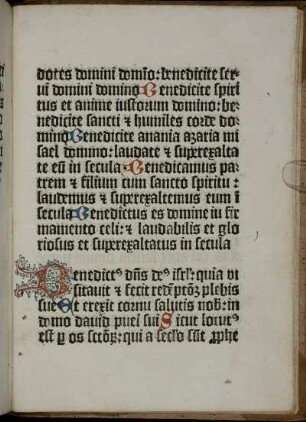 dotes domini domīo: benedicite ser
ui domini domino Benedicite spiri
tus et anime iustorum domino: be
nedicite sancti ⁊ humiles corde do
mino Benedicite anania azaria mi
sael domino: laudate ⁊ superexalta
te eū in secula: Benedicamus pa
trem ⁊ filium cum sancto spiritu:
laudemus ⁊ superexaltemus eum ī
secula Benedictus es domine in fir
mamento celi: ⁊ laudabilis et glo
riosus et superexaltatus in secula
Benedictꝰ dn̄s deꝰ isrl̄: quia vi
sitauit ⁊ fecit redēptōꝫ plebis
sue Et erexit cornu salutis nob̄: in
domo dauid pueri sui Sicut locutꝰ
est ꝑ os sctōꝝ: qui a sec̄lo sūt ꝓphe